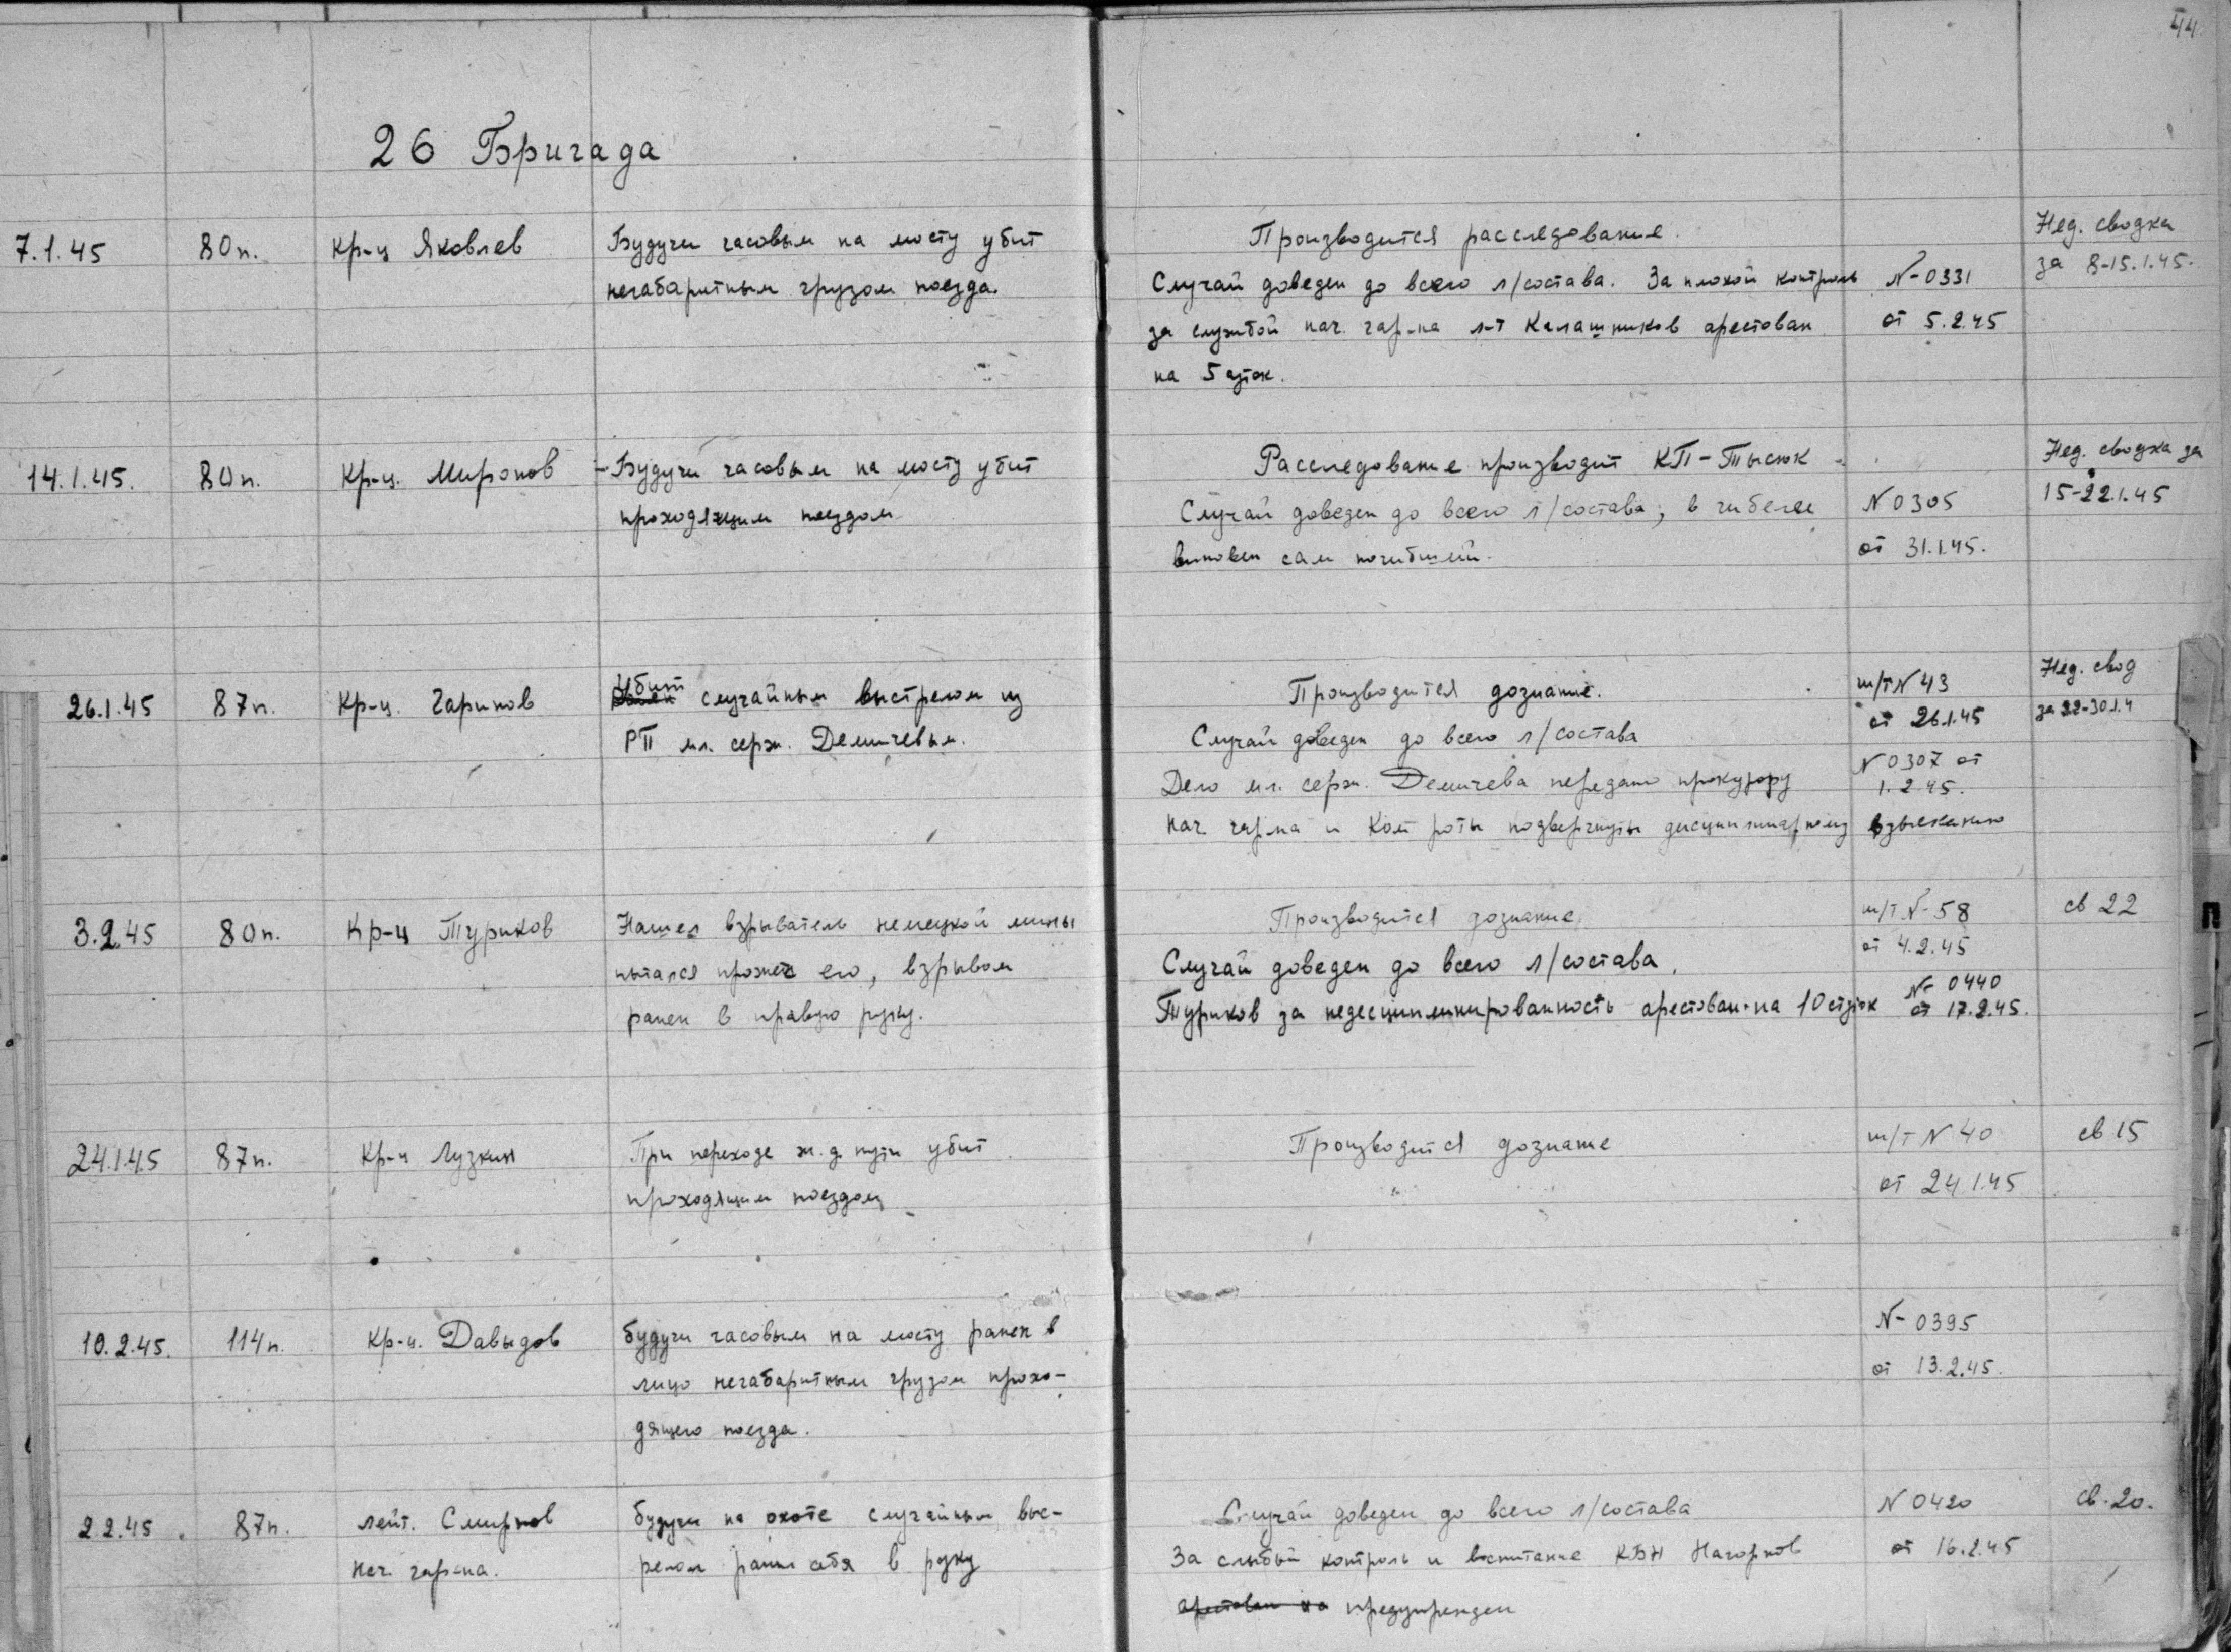 44
26 Бригада
7.1.45 80п. Кр-ц Яковлев Будучи часовым на мосту убит Производится расследование. Нед. сводка
негабаритным грузом поезда. Случай доведен до всего л/состава. За плохой контроль N-0331 за 8-15.1.45.
за службой нач. гар-на л-т Калашников арестован от 5.2.45
на 5 суток.
14.1.45. 80п. Кр-ц. Миронов - Будучи часовым на мосту убит Расследование производит КП-Тысюк Нед. сводка за
проходящим поездом Случай доведен до всего л/состава, в гибели N 0305 15-22.1.45
виновен сам погибший. от 31.1.45.
26.1.45 87п. Кр-ц. Гаринов Убит случайным выстрелом из Производится дознание. ш/т N 43 Нед. свод
РП мл. серж. Демичевым. Случай доведен до всего л/состава от 26.1.45 за 22-30.1.4
Дело мл. серж. Демичева передано прокурору N 0307 от
1.2.45.
Нач. гар-на и Ком роты подвергнуты дисциплинарному взысканию
3.2.45 80п. Кр-ц Туриков Нашел взрыватель немецкой мины Производится дознание. ш/т N-58 св 22
пытался прожеч его, взрывом Случай доведен до всего л/состава. от 4.2.45
ранен в правую руку. Туриков за недесциплинированность арестован на 10 суток N- 0440
от 17.2.45.
24.1.45 87п. Кр-ц Лузкин При переходе ж.д. пути убит Производится дознание ш/т N 40 св 15
проходящим поездом от 24.1.45
10.2.45. 114п. Кр-ц. Давыдов будучи часовым на мосту ранен в N- 0395
лицо негабаритным грузом прохо- от 13.2.45.
дящего поезда.
2.2.45. 87п. лейт. Смирнов будучи на охоте случайным выс- Случай доведен до всего л/состава N 0420 св. 20.
нач. гар-на. релом ранил себя в руку За слабый контроль и воспитание КБН Нагорнов от 16.2.45
арестован на предупрежден